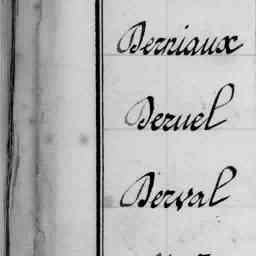 Derniaux
Deruel
Derval